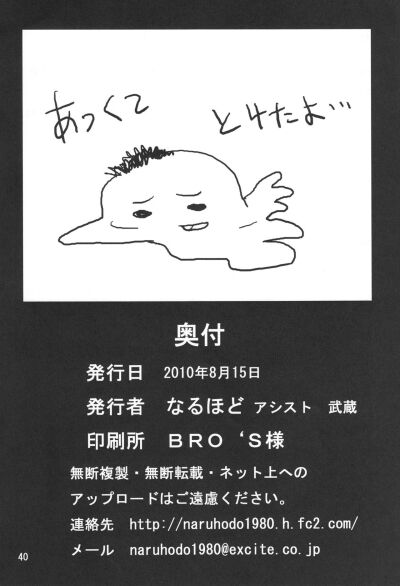 あつくて
とけたよ…
奥付
発行日 2010年8月15日
発行者 なるほど アシスト 武蔵
印刷所 BRO‘S様
無断複製・無断転載・ネット上への
アップロードはご遠慮ください。
連絡先 http://naruhodo1980.h.fc2.com/
メール naruhodo1980@excite.co.jp
40